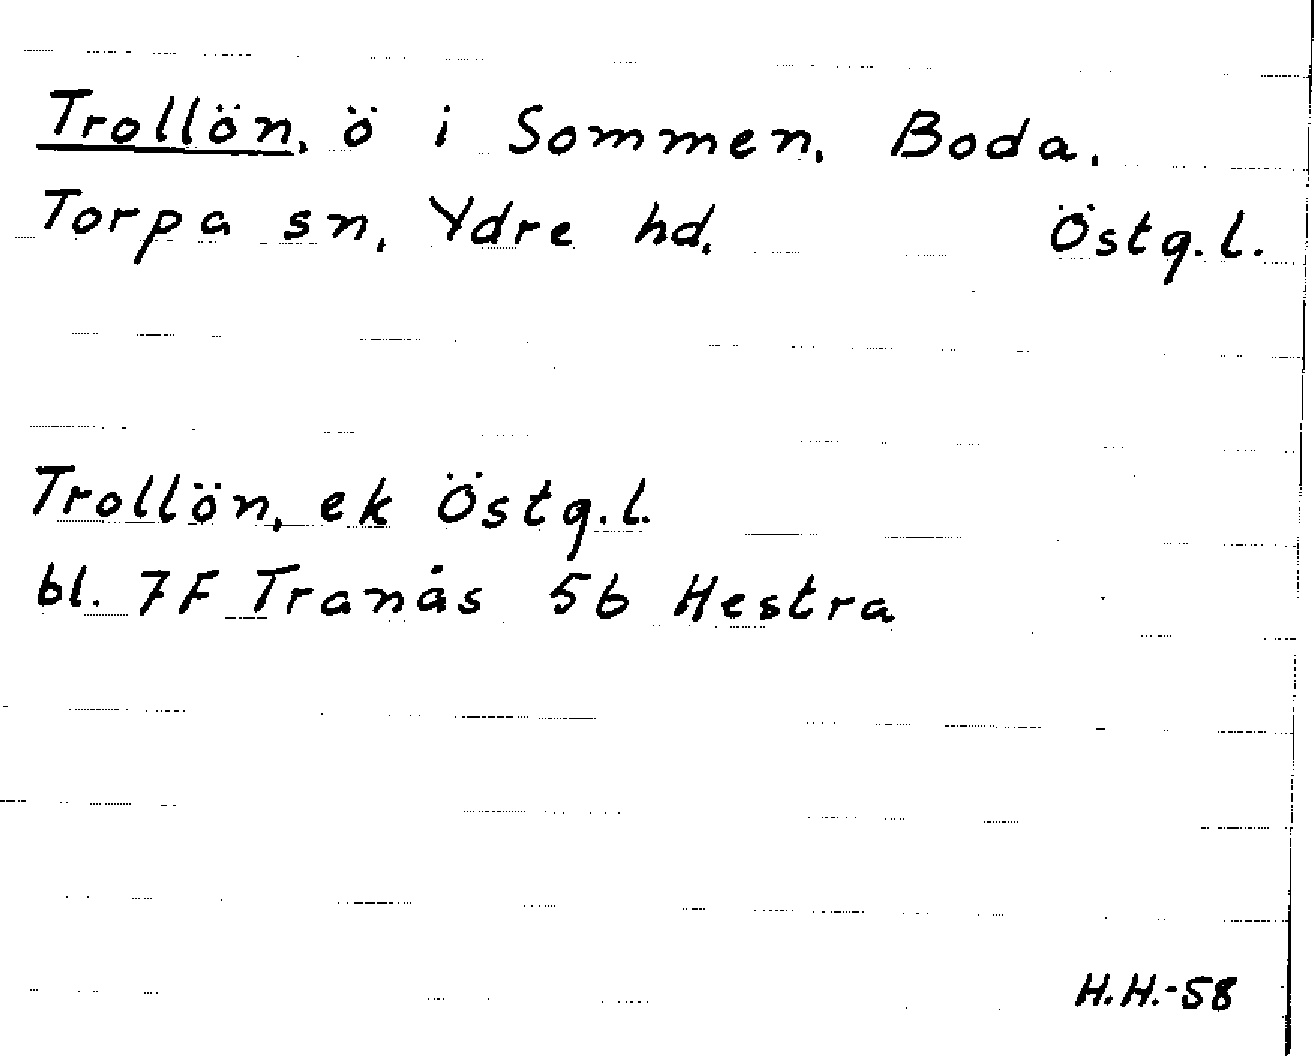 Trollön, ö i Sommen, Boda,
Torpa sn, Ydre hd, Östg.l.
Trollön, ek Östg.l.
bl. 7F Tranås 5b Hestra
H.H.-58